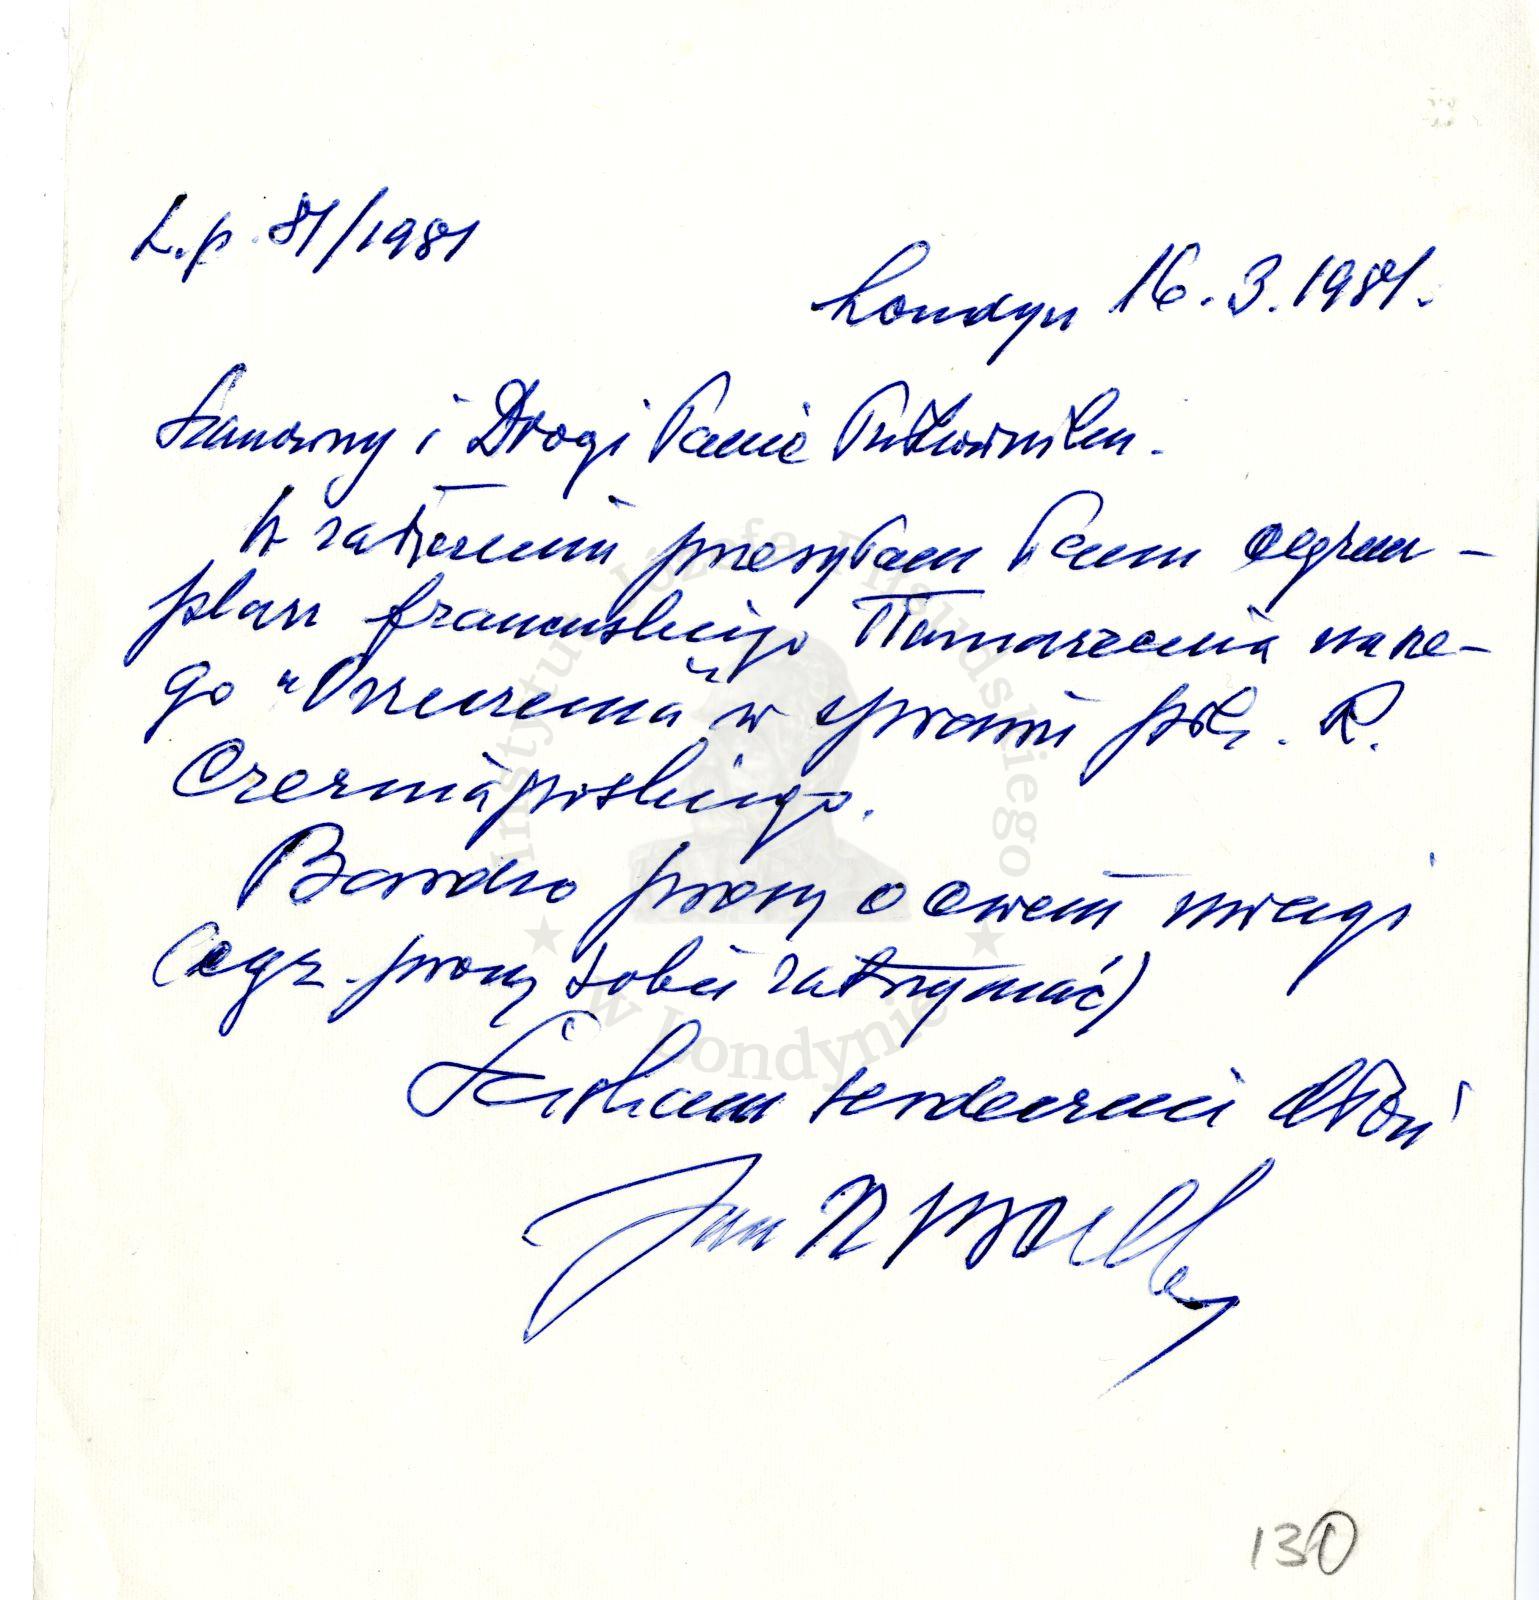 L.p. 81/1981
Londyn 16.3.1981.
Szanowny i Drogi Panie Pułkowniku.
W załączeniu przesyłam Panu egzem-
plarz francuskiego tłumaczenia nasze-
go "Orzeczenia" w sprawie płk. R.
Czerniawskiego.
Bardzo proszę o cenne uwagi
(egz. proszę sobie zatrzymać)
Ściskam serdecznie dłoń
Jan
130
Instytut Józefa Piłsudskiego
w Londynie